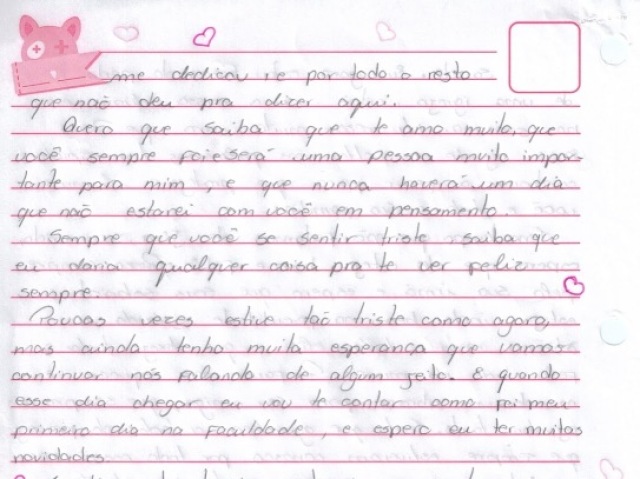 me dedicou, e por todo o resto
que não deu pra dizer aqui.
Quero que saiba que te amo muito, que
você sempre foi e será uma pessoa muito impor-
tante para mim, e que nunca haverá um dia
que não estarei com você em pensamento.
Sempre que você se sentir triste saiba que
eu daria qualquer coisa pra te ver feliz
sempre.
Poucas vezes estive tão triste como agora,
mas ainda tenho muita esperança que vamos
continuar nos falando de algum jeito. E quando
esse dia chegar eu vou te contar como foi meu
primeiro dia na faculdade, e espero eu ter muitas
novidades